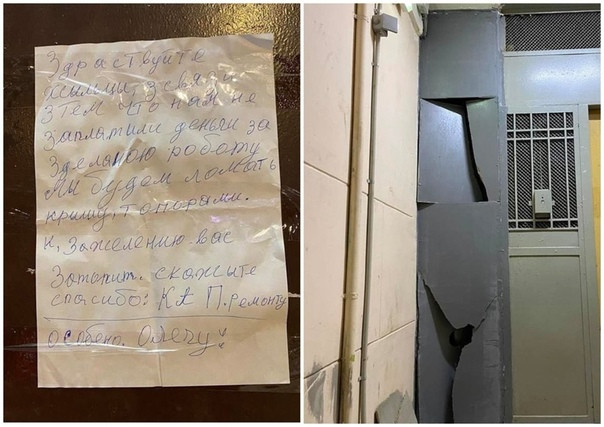 Здраствуйте
жильцы, звязи
зтем что нам не
заплатили деньги за
зделаною роботу
мы будем ломать
крышу, топорами.
к, зажелению. вас
Затопит. скажыте
спасибо: Кл П. ремонту
особено. Олегу